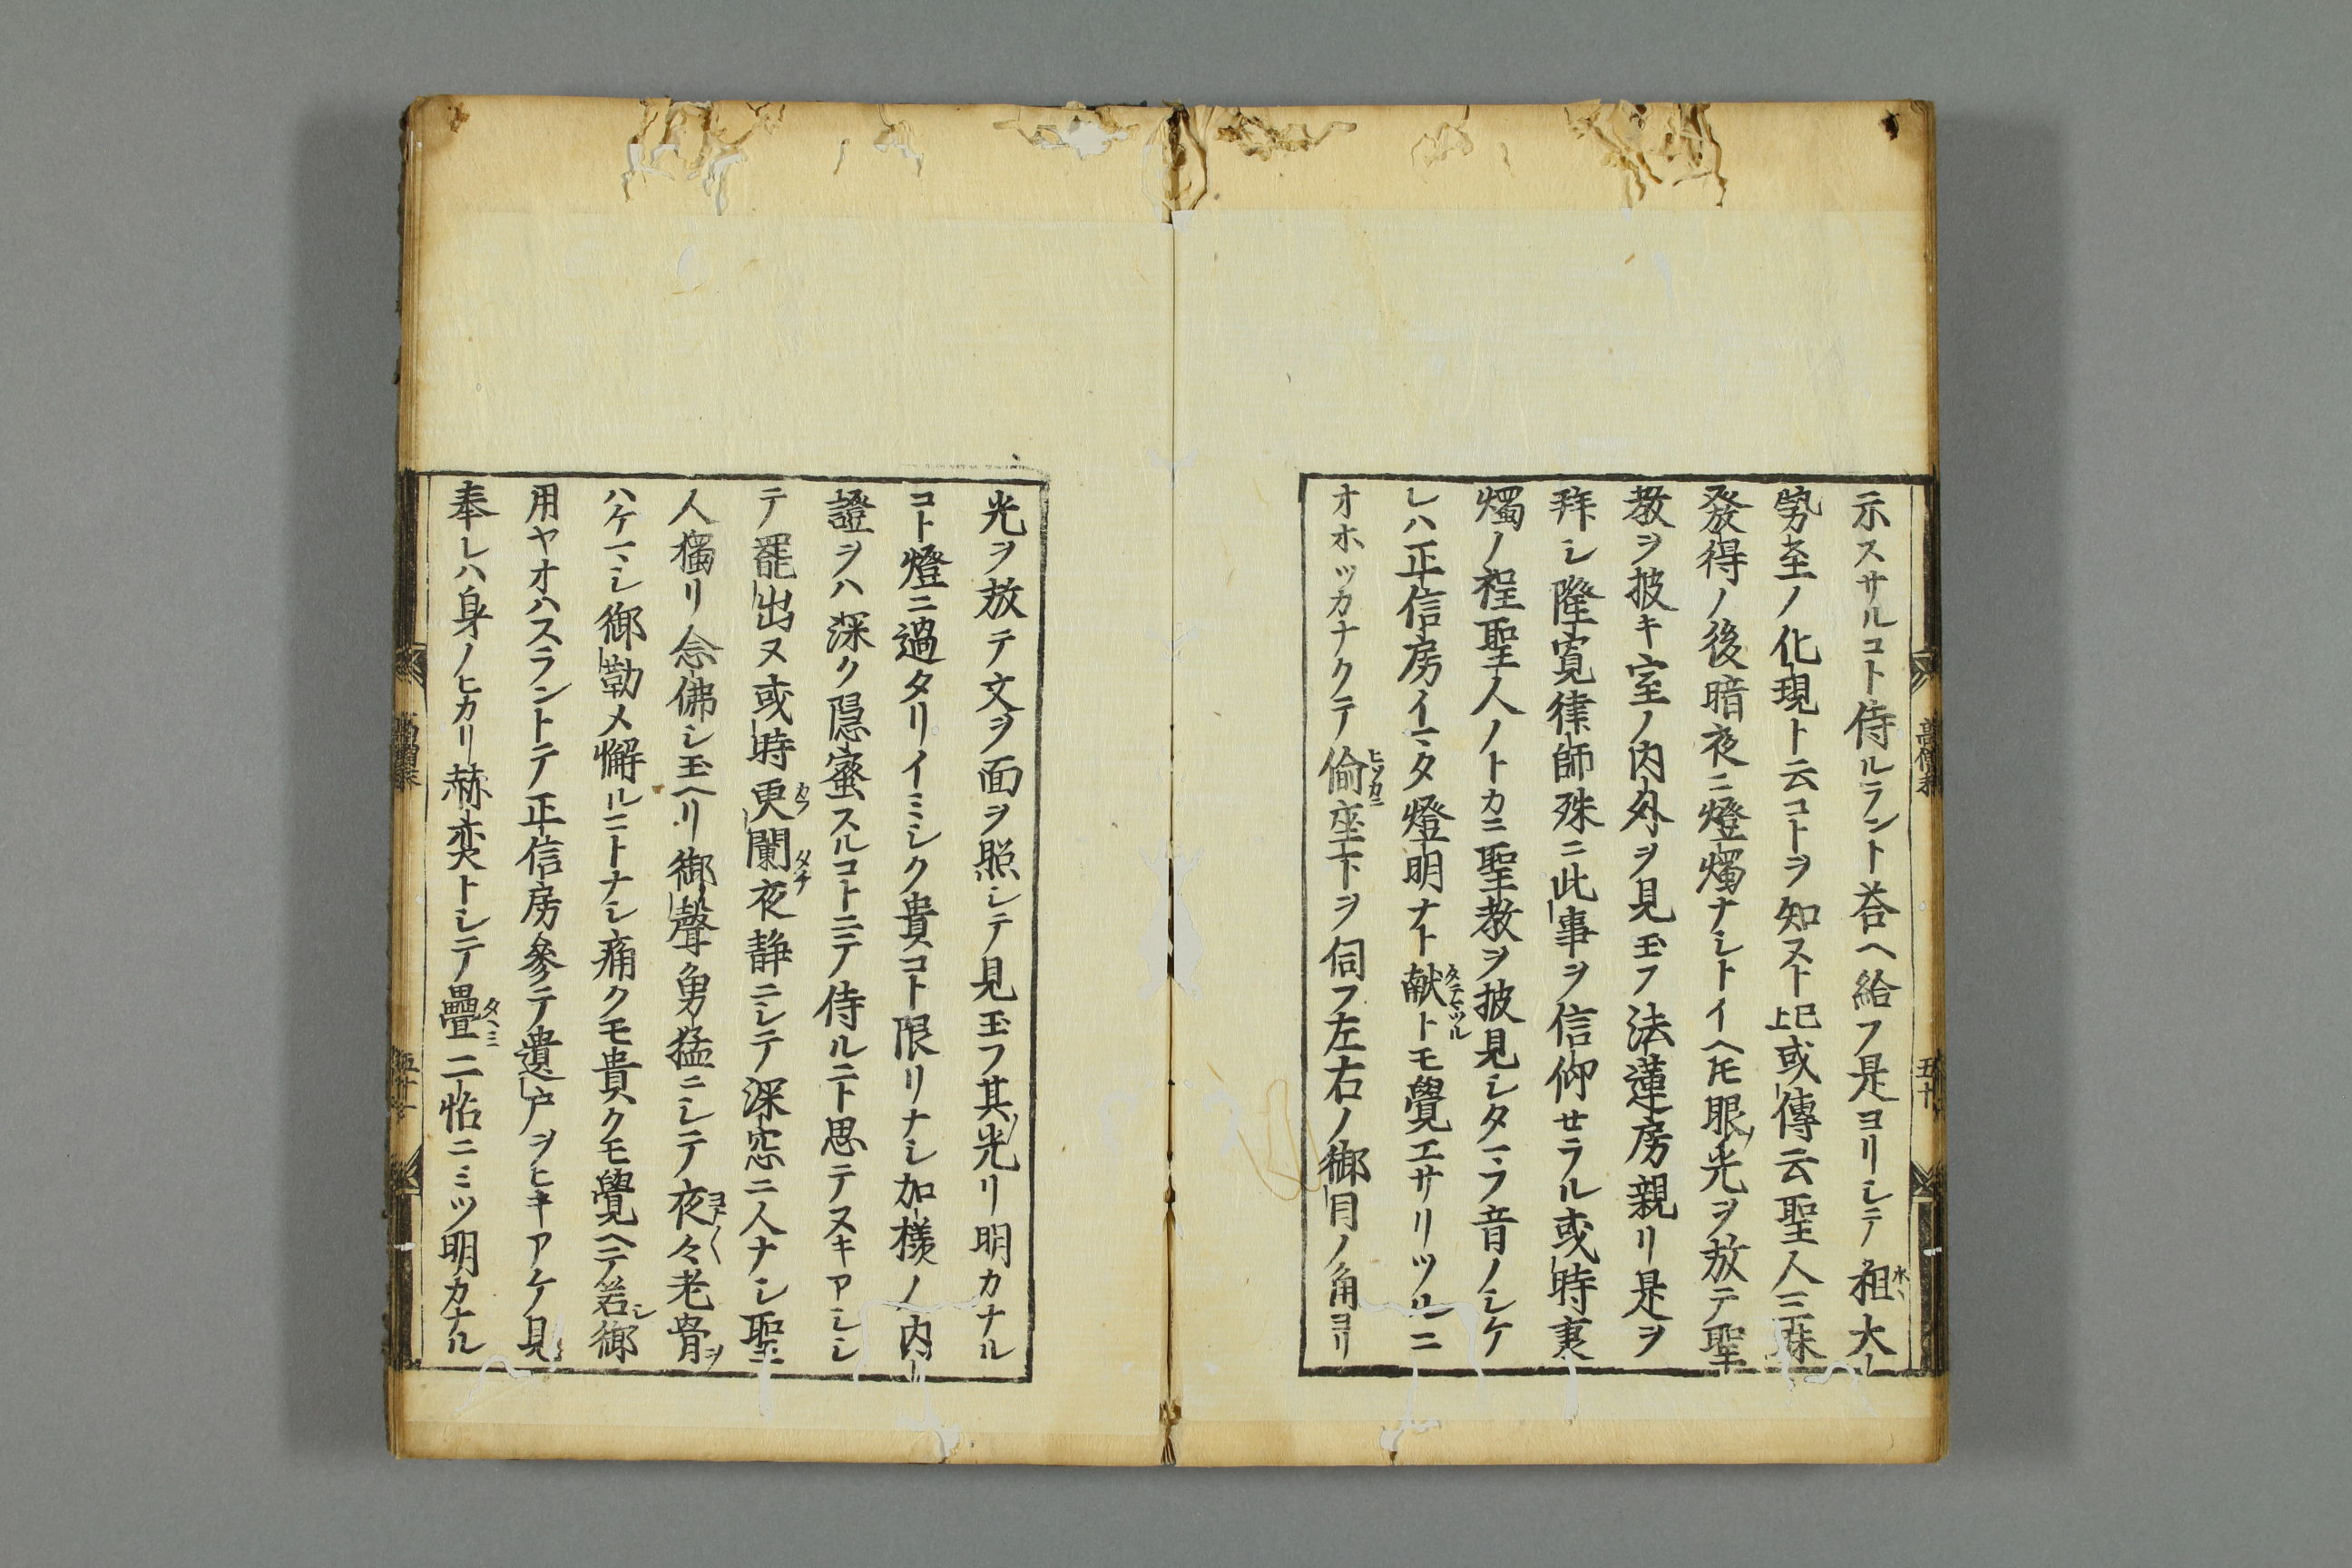 示スサルコト侍ルラント荅ヘ給フ是ヨリシテ粗大
勢至ノ化現ト云コトヲ知スト已上或傳云聖人三昧
發得ノ後暗夜ニ燈燭ナシトイヘ𪜈眼光ヲ放テ聖
教ヲ披キ室ノ内外ヲ見玉フ法蓮房親リ是ヲ
拜シ隆寛律師殊ニ此事ヲ信仰せラル或時
燭ノ程聖人ノトカニ聖教ヲ披見シタマフ音ノシケ
レハ正信房イマタ燈明ナト献トモ覺エサリツルニ
オホツカナクテ偷座下ヲ伺フ左右ノ御目ノ角ヨリ
光ヲ放テ文ヲ面ヲ照シテ見玉フ其光リ明カナル
コト燈ニ過タリイミシク貴コト限リナシ加様ノ内
證ヲハ深ク隠蜜スルコトニテ侍ルニト思テヌキアシシ
テ罷出ヌ或時更闌夜静ニシテ深窓ニ人ナシ聖
人獨リ念佛シ玉ヘリ御聲勇猛ニシテ夜々老骨ヲ
ハケマシ御勤メ懈ルコトナシ痛クモ貴クモ覺ヘテ若御
用ヤオハスラントテ正信房參テ遺戸ヲヒキアケ見
奉レハ身ノヒカリ赫奕トシテ疊二帖ニミツ明カナル
五十